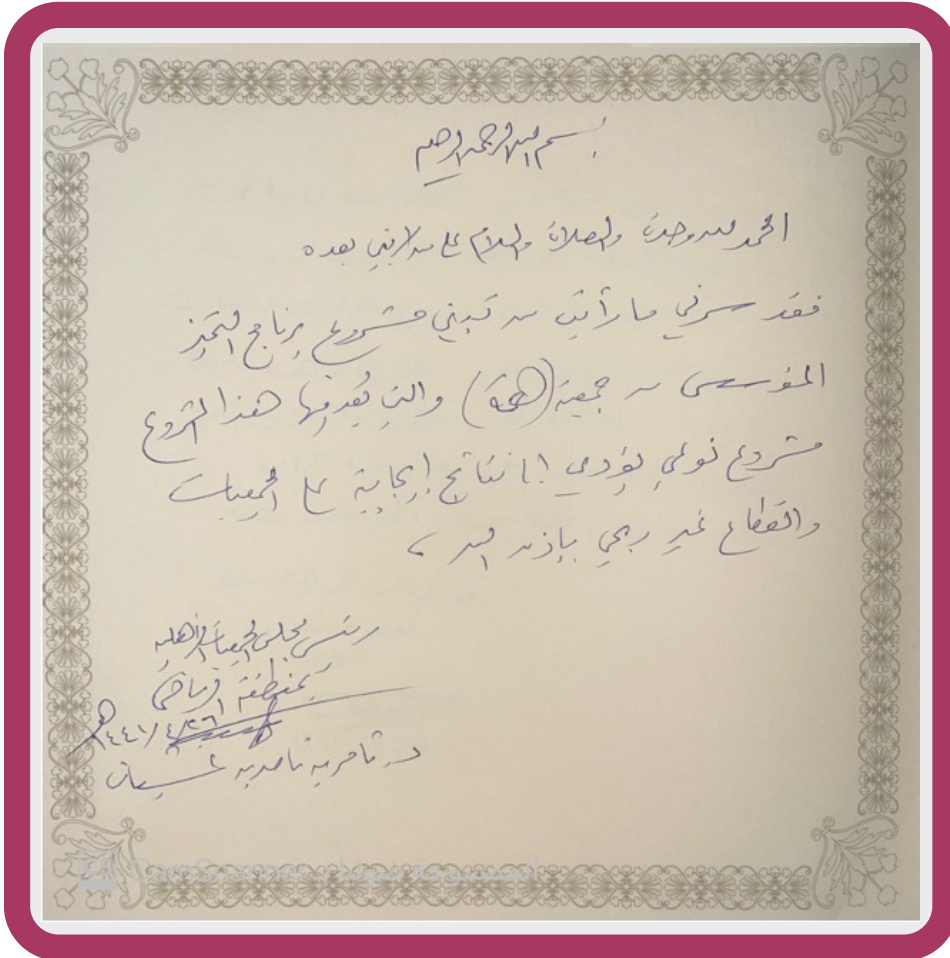 بسم الله الرحمن الرحيم
الحمد لله وحده والصلاة والسلام على من لا نبي بعده
فقد سرني ما رأيت من تبني مشروع برنامج التميز
المؤسسي من جمعية (همة) والتي يُعد منها هذا المشروع
مشروع نوعي يؤدي إلى نتائج إيجابية على الجمعيات
والقطاع غير ربحي بإذن الله ،
رئيس مجلس الجمعيات الأهلية
بمنطقة الرياض
١٤٤١/٤/٢٦هـ
د. ناصر بن
الممسوحة ضوئيا بـ CamScanner